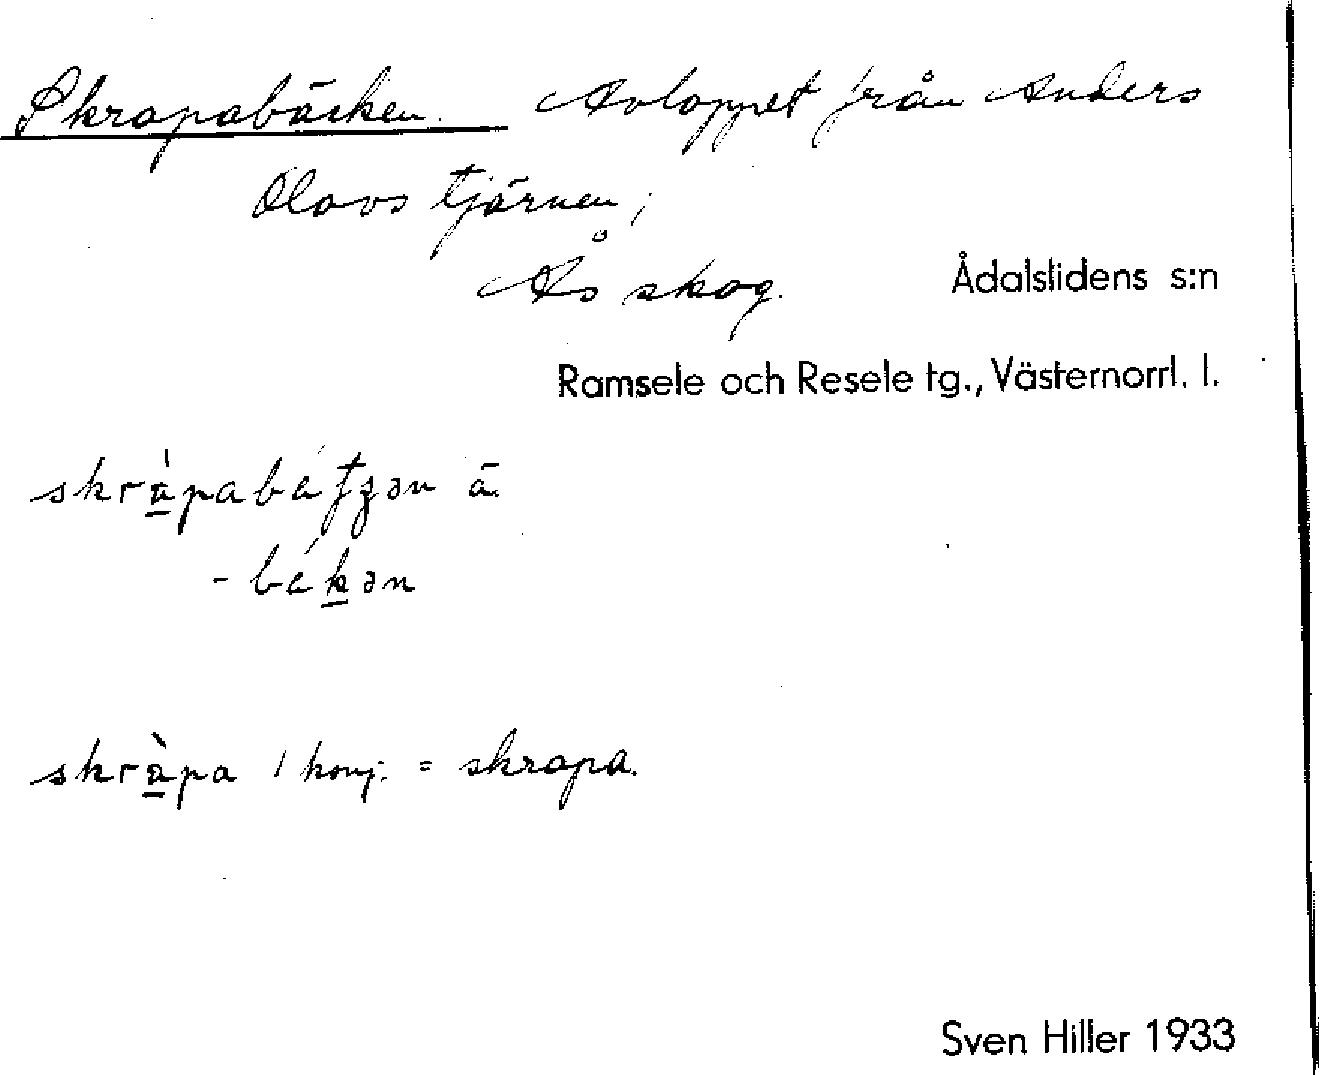 Skrapabäcken. Avloppet från Anders
Olovs tjärnen;
Ås skog. Ådalslidens s:n
Ramsele och Resele tg., Västernorrl. l.
skràpabátʒən ä.
-bákən
skràpa 1 konj. = skrapa.
Sven Hiller 1933